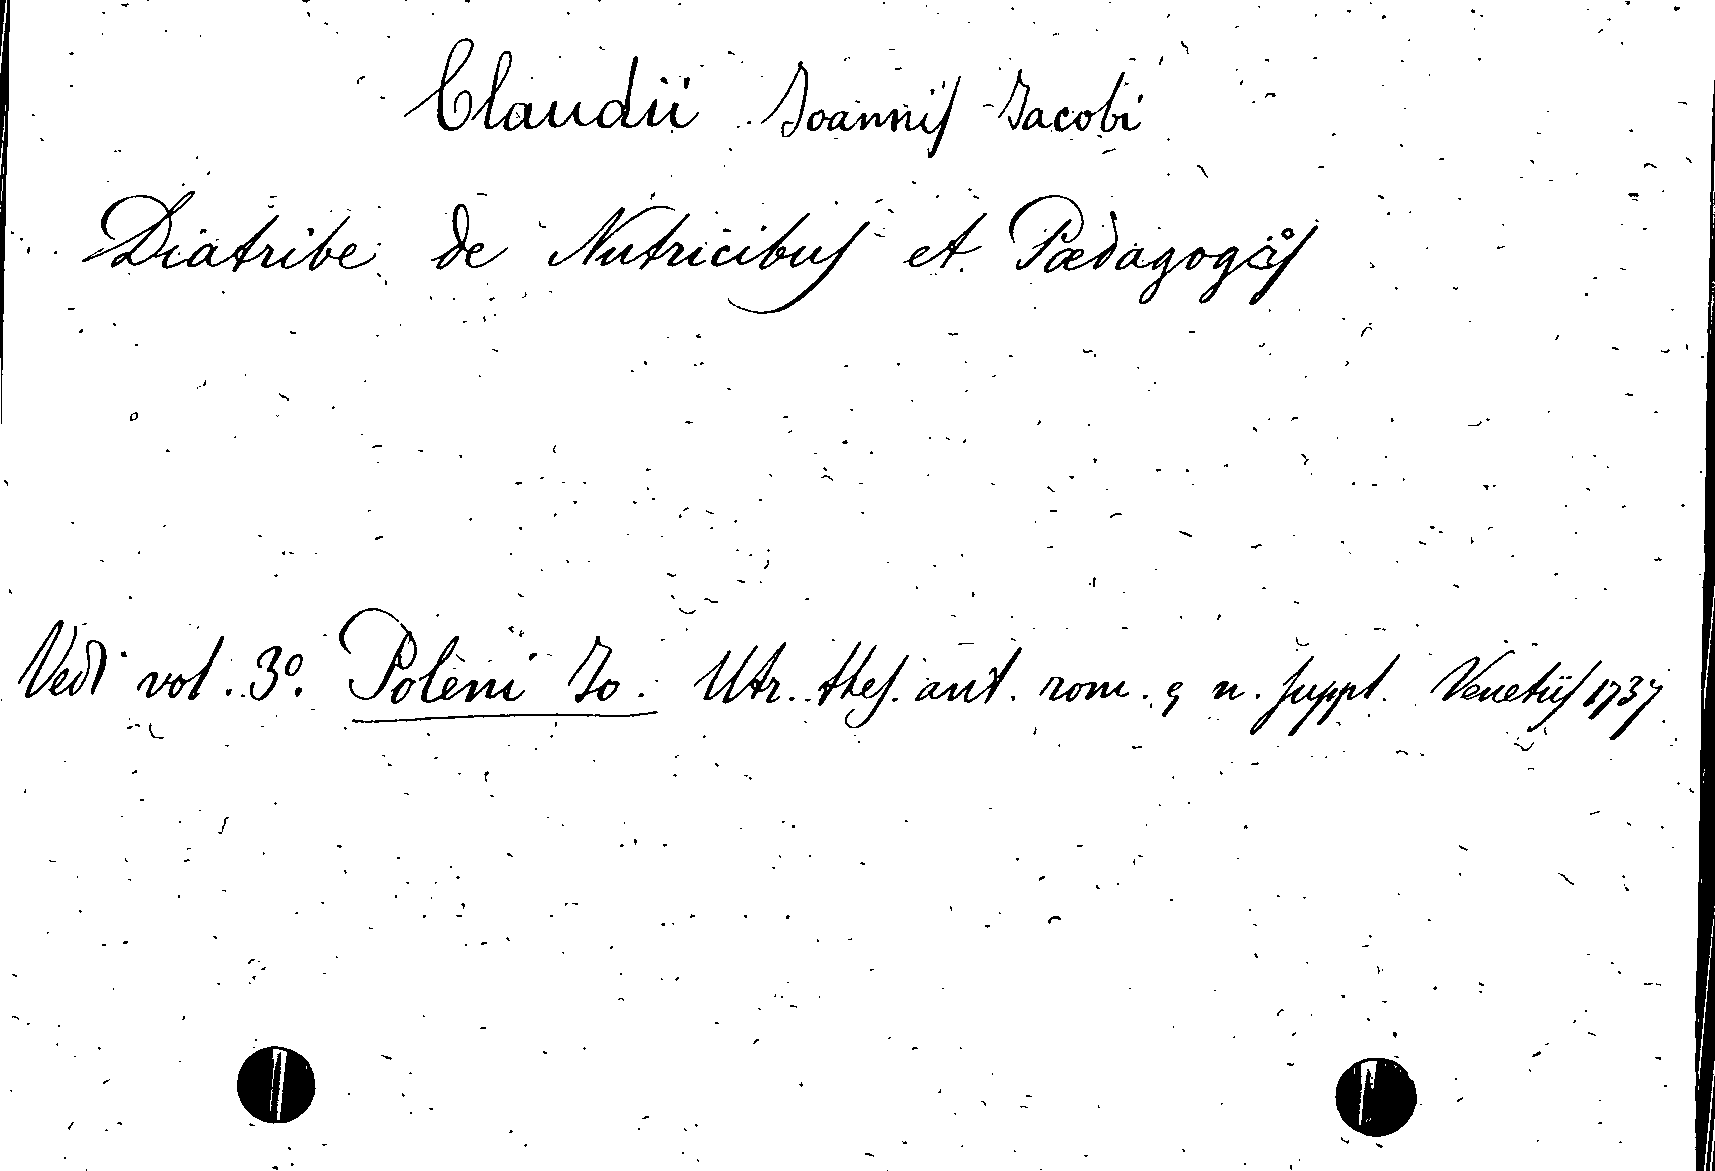 Claudii Joannis Jacobi
Diatribe de Nutricibus et Pædagogis
Vedi vol. 3º. Poleni Jo. Utr. thes. ant. rom. g n. suppl. Venetijs 1737